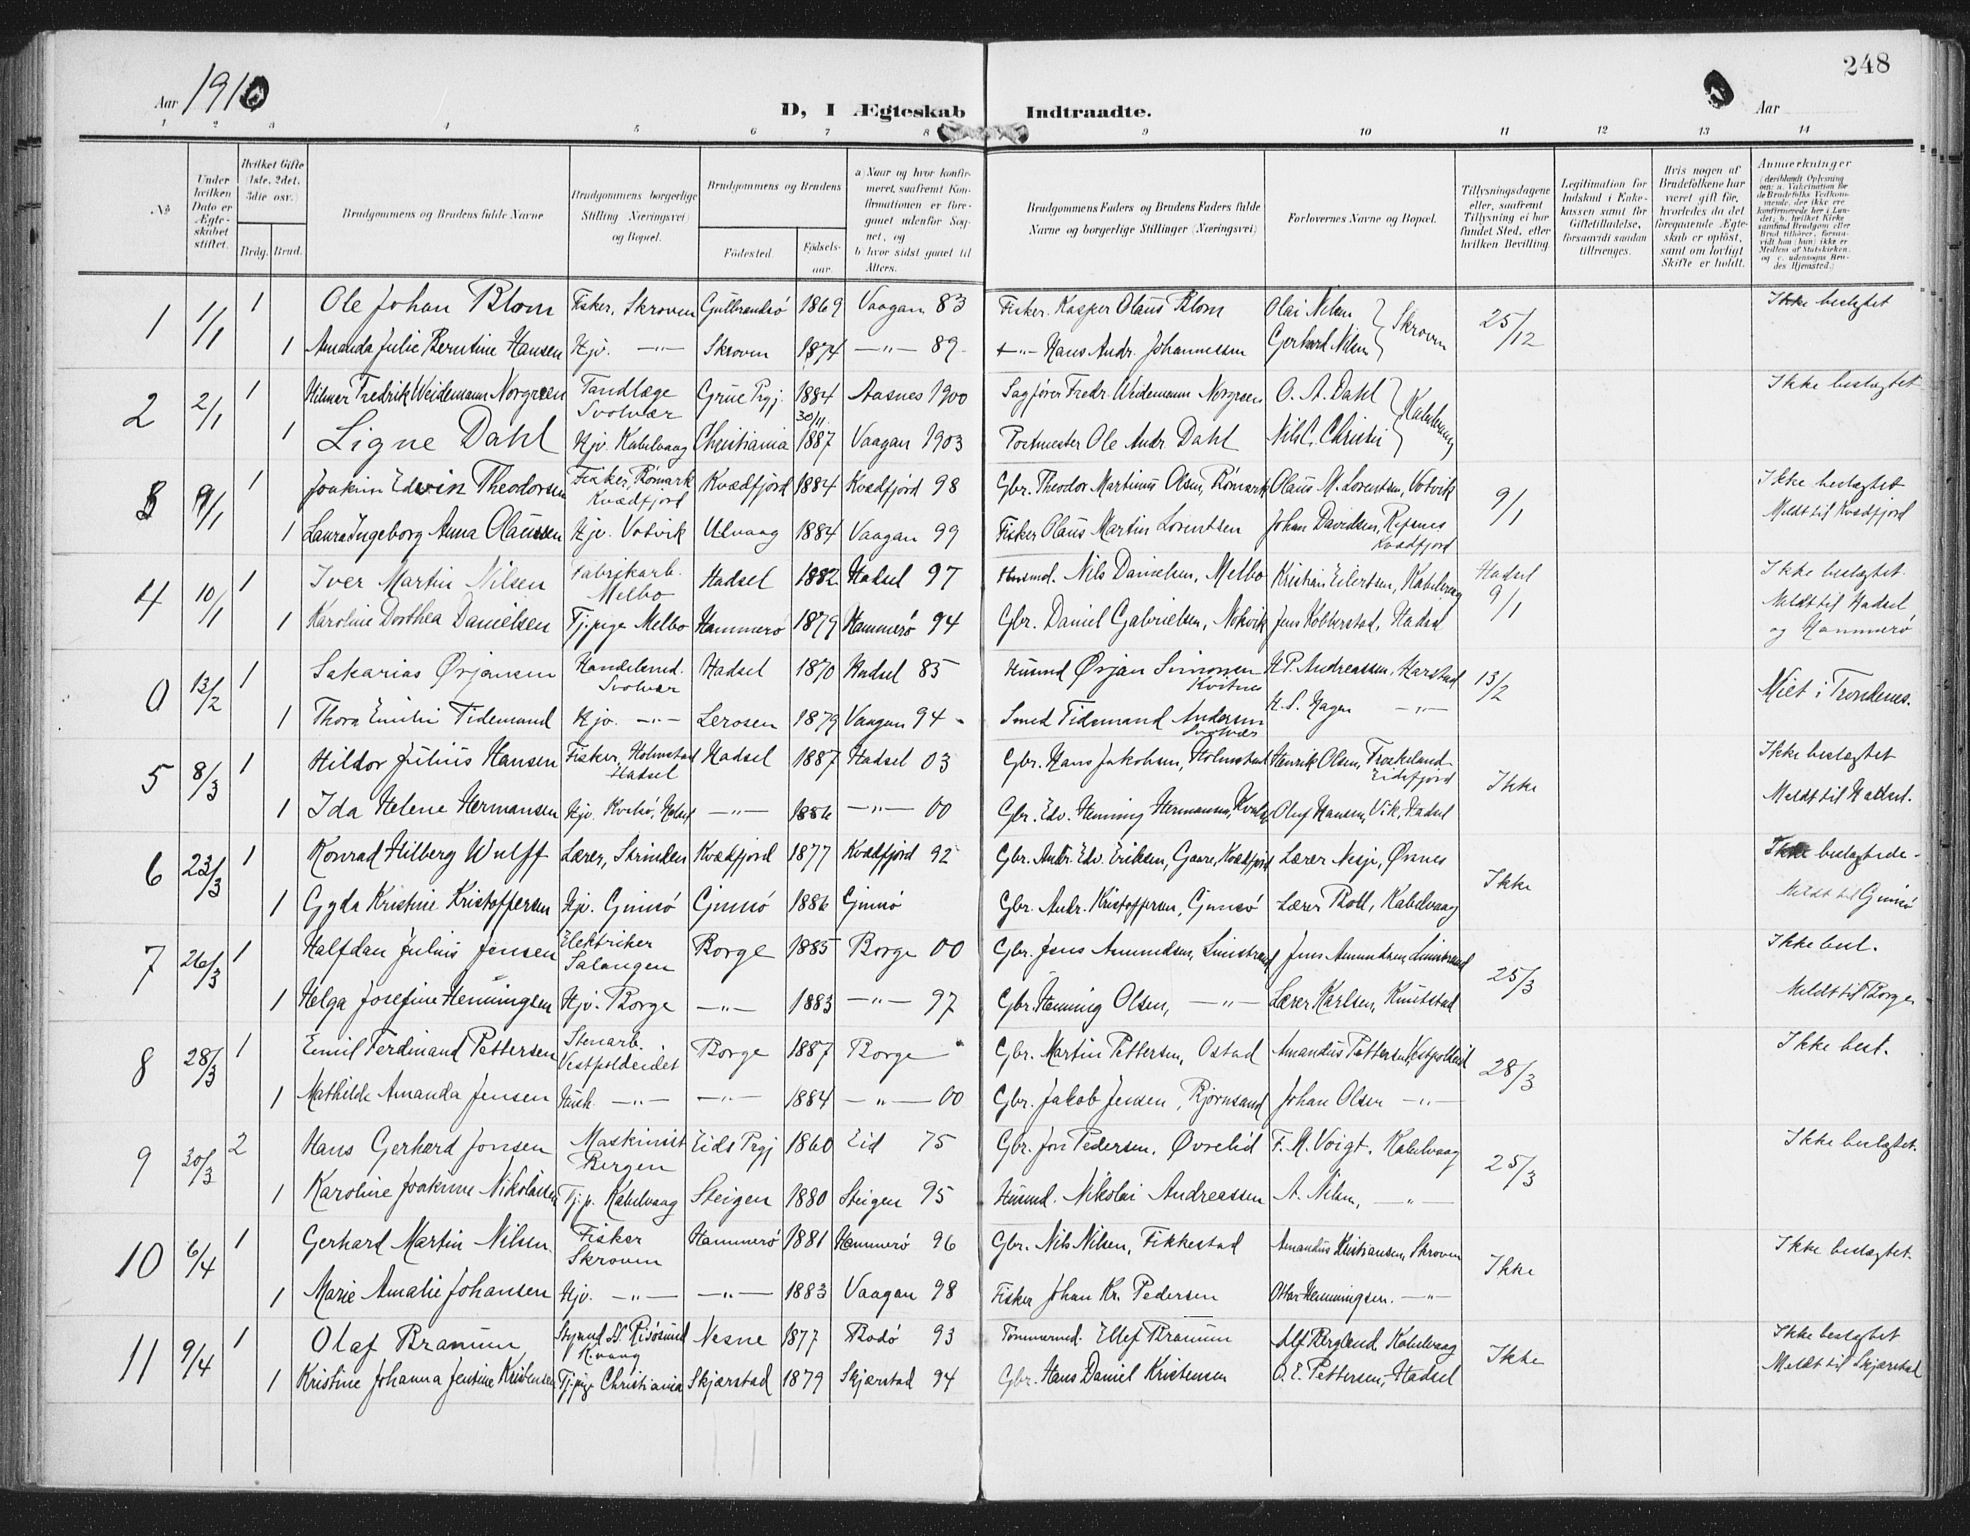 248
Aar 1910
D, I Ægteskab Indtraadte.
Aar
1 2 3 4 5 6 7 8 9 10 11 12 13 14
No
Under hvilken Dato er Ægteskabet stiftet.
Hvilket Gifte (1ste, 2det, 3die osv.)
Brdg. Brud.
Brudgommens og Brudens fulde Navne
Brudgommens borgerlige Stilling (Næringsvei) og Bopæl.
Brudgommens og Brudens
Fødested. Fødselsaar.
a) Naar og hvor konfirmeret, saafremt Konfirmationen er foregaaet udenfor Sognet, og
b) hvor sidst gaaet til Alters.
Brudgommens Faders og Brudens Faders fulde Navne og borgerlige Stillinger (Næringsvei)
Forlovernes Navne og Bopæl.
Tillysningsdagene eller, saafremt Tillysning ei har fundet Sted, efter hvilken Bevilling.
Legitimation for Indskud i Enkekassen samt for Giftetilladelse, forsaavidt saadan tiltrænges.
Hvis nogen af Brudefolkene har været gift før, hvorledes da det foregaaende Ægteskab er opløst, samt om lovligt Skifte er holdt.
Anmerkninger
(deriblandt Oplysning om: a. Vaccination for de Brudefolks Vedkommende, der ikke ere konfirmerede her i Landet; b. hvilket Kirkesamfund Brudgom eller Brud tilhører, forsaavidt han (hun) ikke er Medlem af Statskirken, og c. udensogns Brudes Hjemsted.)
1 1/1 1 Ole Johan Blom Fisker, Skroven Gulbrandsø 1869 Vaagan 83 Fisker Kasper Olaus Blom Olai Nilsen Skroven 25/12 Ikke beslægtet
1 Amanda Julie Berntine Hansen Hjv. —"— Skroven 1874 —"— 89 —"— Hans Andr. Johannessen Gerhard Nilsen
2 2/1 1 Hilmer Fredrik Weidemann Norgreen Tandlæge Svolvær Grue Prgj. 1884 Aasnes 1900 Sagfører Fredr. Weidemann Norgreen O. A. Dahl Kabelvaag Ikke beslægtet
1 Signe Dahl Hjv. Kabelvaag Christiania 30/11 1887 Vaagan 1903 Postmester Ole Andr. Dahl Nils C. Christie
3 9/1 1 Joakim Edwin Theodorsen Fisker, Rømark Kvædfjord Kvædfjord 1884 Kvædfjord 98 Gbr. Theodor Martinus Olsen, Rømark Olaus M. Lorentsen, Votvik 9/1 Ikke beslægtet
1 Laura Ingeborg Anna Olaussen Hjv. Votvik Ulvaag 1884 Vaagan 99 Fisker Olaus Martin Lorentsen Johan Davidsen, Refsnes Kvædfjord Meldt til Kvædfjord
4 10/1 1 Iver Martin Nilsen Fabrikarb. Melbo Hadsel 1882 Hadsel 97 Husmd. Nils Danielsen, Melbo Kristian Eilertsen, Kabelvaag Hadsel 9/1 Ikke beslægtet
1 Karoline Dorthea Danielsen Tj.pige Melbo Hammerø 1879 Hammerø 94 Gbr. Daniel Gabrielsen, Nokvik Jens Kobberstad, Hadsel Meldt til Hadsel og Hammerø
0 13/2 1 Sakarias Ørjansen Handelsmd. Svolvær Hadsel 1870 Hadsel 85 Husmd Ørjan Simonsen Kvitnes H. P. Andreassen, Harstad 13/2 Viet i Trondenes.
1 Thora Emilie Tidemand Hjv. —"— Lerosen 1879 Vaagan 94 Smed Tidemand Andersen Svolvær H. S. Hagen —"—
5 8/3 1 Hildor Julius Hansen Fisker, Holmstad Hadsel Hadsel 1887 Hadsel 03 Gbr. Hans Jakobsen, Holmstad Henrik Olsen, Frøskeland Eidsfjord Ikke Ikke beslægtet
1 Ida Helene Hermansen Hjv. —"— 1886 —"— 00 Gbr. Edv. Henning Hermansen, Oluf Hansen, Vik, Hadsel Meldt til Hadsel.
6 23/3 1 Konrad Hilberg Wulff Lærer, Strinden Kvædfjord 1877 Kvædfjord 92 Gbr. Andr. Edv. Eriksen, Gaare, Kvædfjord Lærer Nesje, Ørsnes Ikke Ikke beslægtede
1 Gyda Kristine Kristoffersen Hjv. Gimsø Gimsø 1886 Gimsø Gbr. Andr. Kristoffersen, Gimsø Lærer Boll, Kabelvaag Meldt til Gimsø
7 26/3 1 Halfdan Julius Jensen Elektriker Salangen Borge 1885 Borge 00 Gbr. Jens Amundsen, Limstrand Jens Amundsen, Limstrand 25/3 Ikke besl.
1 Helga Josefine Henningsen Hjv. Borge —"— 1883 —"— 97 Gbr. Henning Olsen, —"— Lærer Karlsen, Knutstad Meldt til Borge
8 28/3 1 Emil Ferdinand Pettersen Stenarb. Vestpoldeidet Borge 1887 Borge " Gbr. Martin Pettersen, Ostad Amandus Pettersen, Vestpoldeid 28/3 Ikke besl.
1 Mathilde Amanda Jensen Hush. —"— —"— 1884 —"— 00 Gbr. Jakob Jensen, Bjørnsand Johan Olsen —"—
9 30/3 2 Hans Gerhard Jonsen Maskinist Bergen Eids Prgj 1860 Eid 75 Gbr. Jon Pedersen, Øvrelid F. M. Voigt, Kabelvaag 25/3 Ikke beslægtet.
1 Karoline Joakime Nikolaisen Tj.p. Kabelvaag Steigen 1880 Steigen 95 Husmd. Nikolai Andreassen A. Nilsen, —"—
10 6/4 1 Gerhard Martin Nilsen Fisker Skroven Hammerø 1881 Hammerø 96 Gbr. Nils Nilsen, Fikkestad Amandus Kristiansen, Skroven Ikke Ikke beslægtet.
1 Marie Amalie Johansen Hjv. —"— —"— 1883 Vaagan 98 Fisker Johan Kr. Pedersen Oskar Henningsen —"—
11 9/4 1 Olaf Branum Styrmd. Risøsund K.vaag Nesne 1877 Bodø 93 Tømmermd. Ellef Branum Alf Berglund Kabelvaag Ikke Ikke beslægtet
1 Kristine Johanna Jentine Kristensen Tj.pige Christiania Skjærstad 1879 Skjærstad 94 Gbr. Hans Daniel Kristensen O. E. Pettersen, Hadsel Meldt til Skjærstad